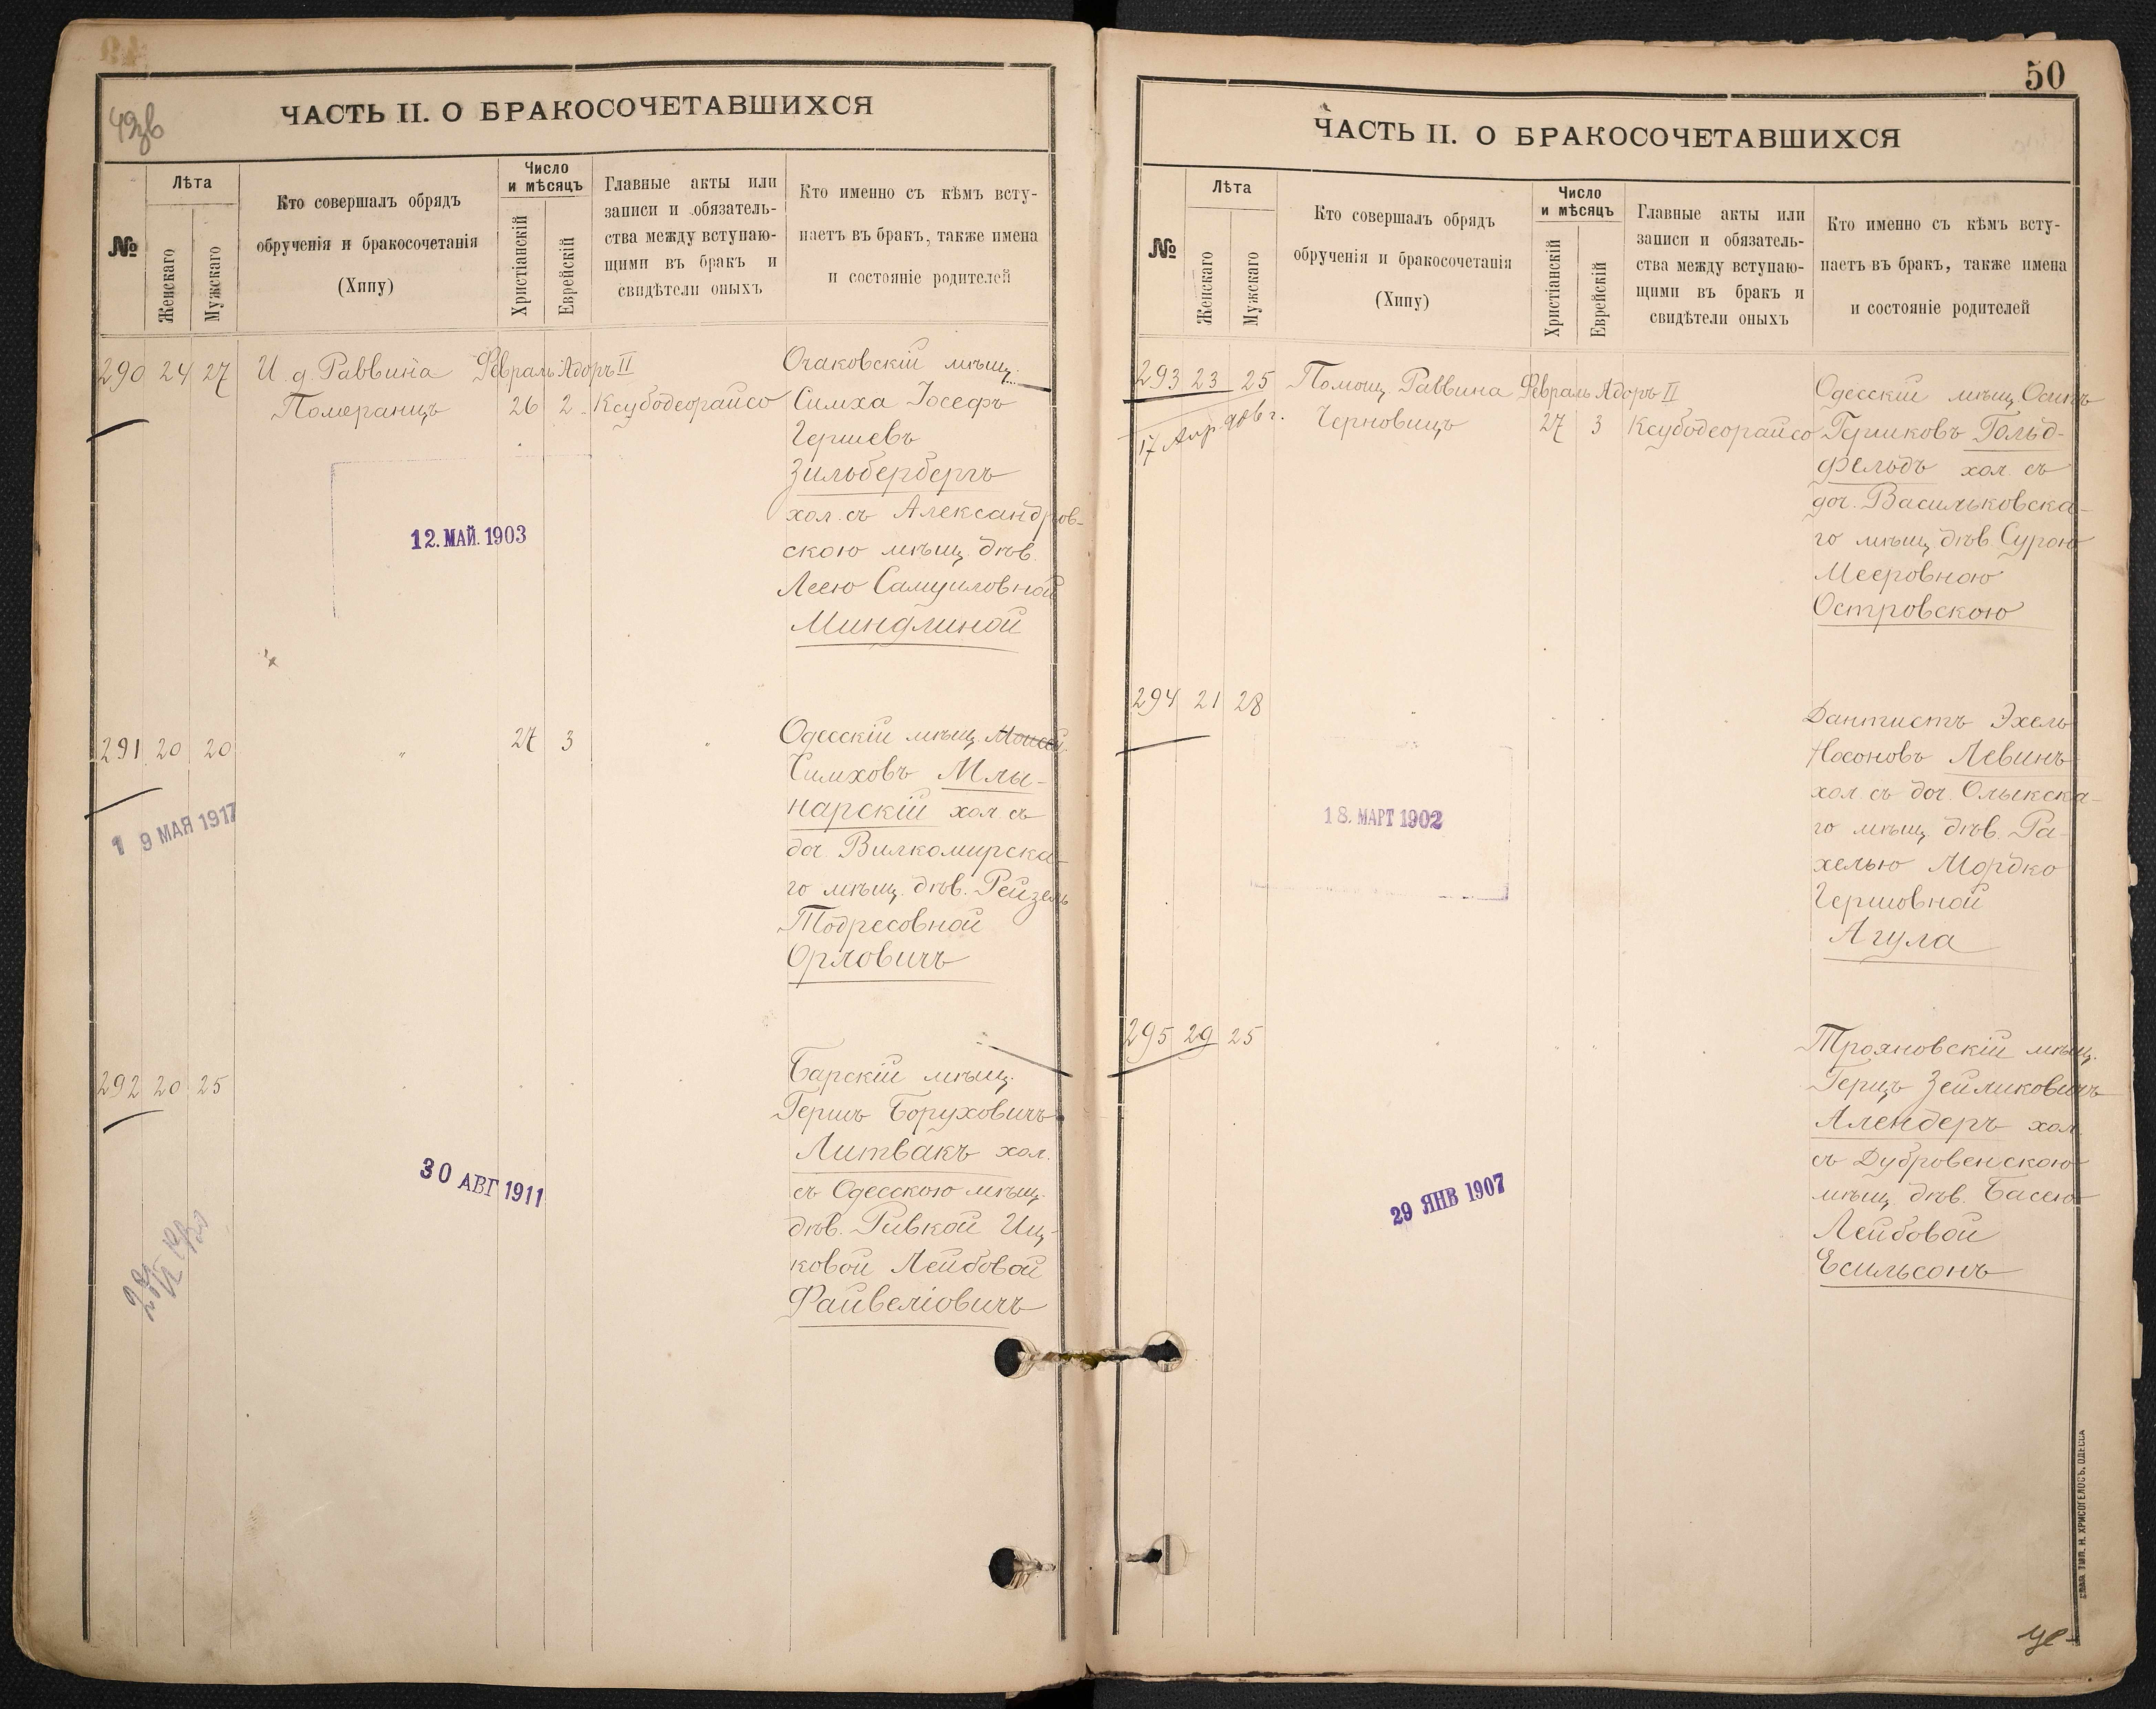 49зв
ЧАСТЬ II. О БРАКОСОЧЕТАВШИХСЯ
№
Лѣта
Женскаго
Мужскаго
Кто совершалъ обрядъ
обрученія и бракосочетанія
(Хипу)
Число
и мѣсяцъ
Христіанскій
Еврейскій
Главные акты или
записи и обязатель-
ства между вступаю-
щими въ бракъ и
свидѣтели оныхъ
Кто именно съ кѣмъ всту-
паетъ въ бракъ, также имена
и состояніе родителей
290 24 27 И. д. Раввина Февраль Адоръ II Очаковскій мѣщ.
Померанцъ 26 2 Ксубодеорайсо Симха Іосефъ
Гершевъ
Зильбербергъ
хол. съ Александров-
скою мѣщ. дѣв.
Леею Самуиловной
Миндлиной
12. МАЙ. 1903
291 20 20 " 27 3 " Одесскій мѣщ. Моисей
Симховъ Млы-
нарскій хол. съ
доч. Вилкомирска-
го мѣщ. дѣв. Рейзель
Тодресовной
Орловичъ
19 МАЯ 1917
292 20 25 Барскій мѣщ.
Гершъ Боруховичъ
Литвакъ хол.
съ Одесскою мѣщ.
дѣв. Ривкой Иц-
ковой Лейбовой
Файвеліовичъ
30 АВГ 1911
50
ЧАСТЬ II. О БРАКОСОЧЕТАВШИХСЯ
№
Лѣта
Женскаго
Мужскаго
Кто совершалъ обрядъ
обрученія и бракосочетанія
(Хипу)
Число
и мѣсяцъ
Христіанскій
Еврейскій
Главные акты или
записи и обязатель-
ства между вступаю-
щими въ бракъ и
свидѣтели оныхъ
Кто именно съ кѣмъ всту-
паетъ въ бракъ, также имена
и состояніе родителей
293 23 25 Помощ. Раввина Февраль Адоръ II Одесскій мѣщ. Осипъ
17 Апр. 906 г. Черновицъ 27 3 Ксубодеорайсо Гершковъ Гольд-
фельдъ хол. съ
доч. Васильковска-
го мѣщ. дѣв. Сурою
Мееровною
Островскою
294 21 28 Дантистъ Эхель
Носоновъ Левинъ
хол. съ доч. Олыкска-
го мѣщ. дѣв. Ра-
хелью Мордко
Гершовной
Агула
18. МАРТ 1902
295 29 25 Трояновскій мѣщ.
Герцъ Зейликовичъ
Алендеръ хол.
съ Дубровенскою
мѣщ. дѣв. Басею
Лейбовой
Есильсонъ
29 ЯНВ 1907
СЛАВ. ТИП. Н. ХРИСОГЕЛОСЪ, ОДЕССА